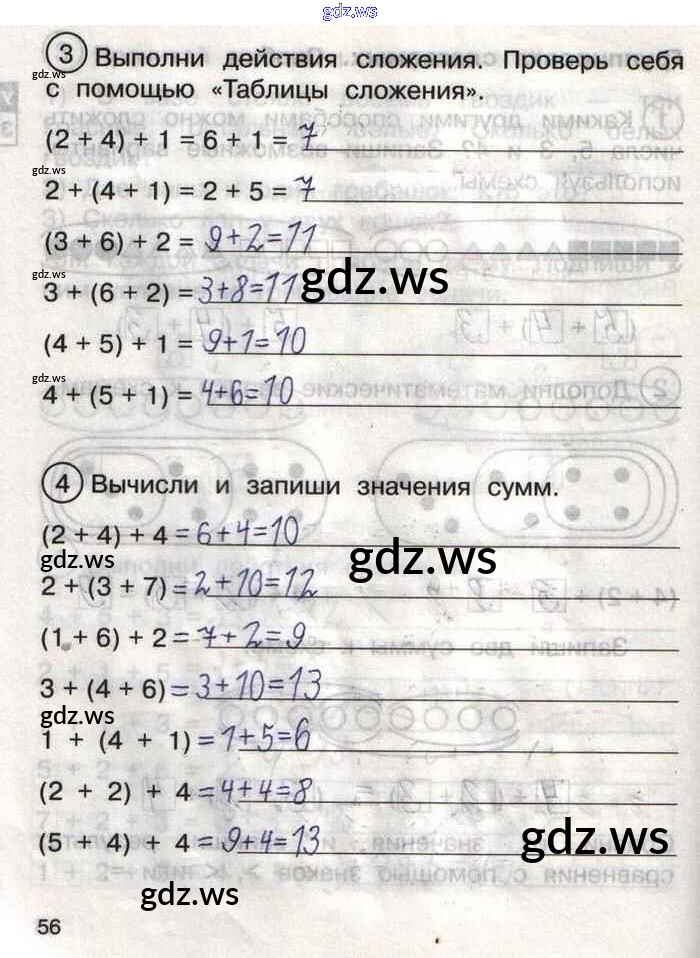 gdz.ws
3 Выполни действия сложения. Проверь себя
gdz.ws
с помощью «Таблицы сложения».
(2 + 4) + 1 = 6 + 1 = 7
gdz.ws
2 + (4 + 1) = 2 + 5 = 7
(3 + 6) + 2 = 9+2=11
gdz.ws
3 + (6 + 2) = 3+8=11
gdz.ws
(4 + 5) + 1 = 9+1=10
gdz.ws
4 + (5 + 1) = 4+6=10
4 Вычисли и запиши значения сумм.
(2 + 4) + 4 = 6+4=10
gdz.ws
gdz.ws
2 + (3 + 7) = 2+10=12
(1 + 6) + 2 = 7+2=9
3 + (4 + 6) = 3+10=13
gdz.ws
1 + (4 + 1) = 1+5=6
(2 + 2) + 4 = 4+4=8
(5 + 4) + 4 = 9+4=13
gdz.ws
gdz.ws
56